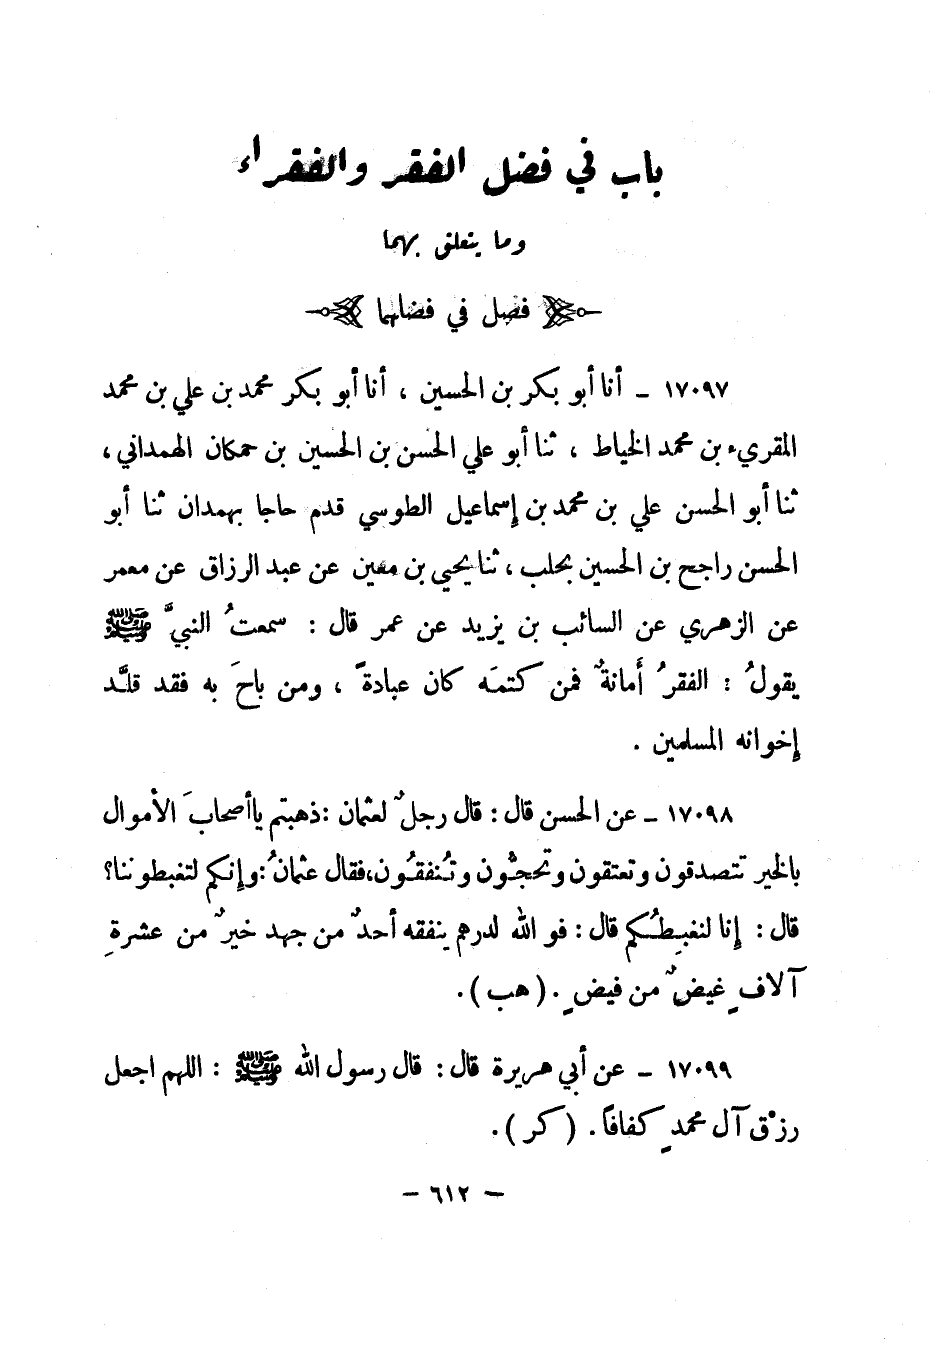 باب في فضل الفقر والفقراء
وما يتعلق بهما
فصل في فضلهما
١٧٠٩٧ ـ أنا أبو بكر بن الحسين ، أنا أبو بكر محمد بن علي بن محمد
المقريء بن محمد الخياط ، ثنا أبو علي الحسن بن الحسين بن حمكان الهمداني ،
ثنا أبو الحسن علي بن محمد بن إسماعيل الطوسي قدم حاجا بهمدان ثنا أبو
الحسن راجح بن الحسين بحلب ، ثنا يحيى بن معين عن عبد الرزاق عن معمر
عن الزهري عن السائب بن يزيد عن عمر قال : سمعتُ النبيَّ ﷺ
يقولُ : الفقرُ أمانةٌ فمن كتمَه كان عبادةً ، ومن باحَ به فقد قلَّد
إخوانه المسلمين .
١٧٠٩٨ ـ عن الحسن قال : قال رجلٌ لعثمان : ذهبتم يا أصحابَ الأموال
بالخير تتصدقون وتعتقون وتحجُّون وتُنفقُون ، فقال عثمانُ : وإنكم لتغبطوننا ؟
قال : إنا لنغبِطُكم قال : فو الله لدرهم ينفقه أحدٌ من جهد خيرٌ من عشرةِ
آلافٍ غيضٌ من فيضٍ . ( هب ) .
١٧٠٩٩ ـ عن أبي هريرة قال : قال رسول الله ﷺ : اللهم اجعل
رزْق آل محمدٍ كفافاً . ( كر ) .
— ٦١٢ —